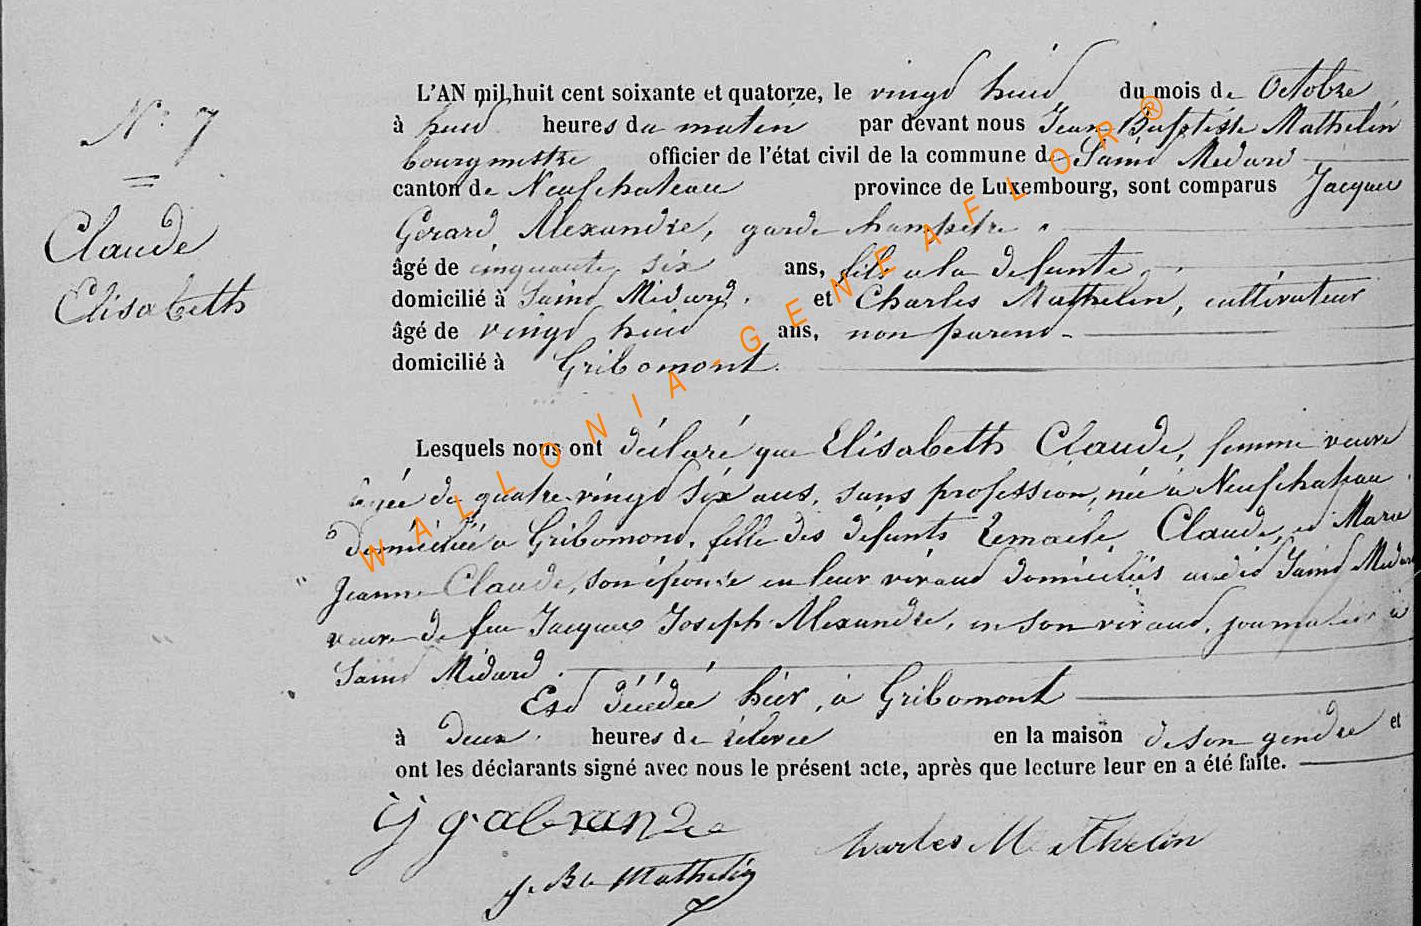 N° 7
Claude
Elisabeth
L'AN mil huit cent soixante et quatorze, le vingt huit du mois de Octobre
à huit heures du matin par devant nous Jean Baptiste Mathelin
bourgmestre officier de l'état civil de la commune de Saint Médard
canton de Neufchateau province de Luxembourg, sont comparus Jacques
Gérard Alexandre, garde champêtre
âgé de cinquante six ans, fils a la défunte
domicilié à Saint Médard. et Charles Mathelin, cultivateur
âgé de vingt huit ans, non parent
domicilié à Gribomont.
Lesquels nous ont déclaré que Elisabeth Claude, femme veuve
agée de quatre-vingt six ans, sans profession, née à Neufchateau
domiciliée a Gribomont, fille des défunts Remacle Claude, et Marie
Jeanne Claude, son épouse en leur vivant domiciliés audit Saint Médard
veuve de feu Jacques Joseph Alexandre, en son vivant, journalier à
Saint Médard.
Est décédée hier, à Gribomont
à deux heures de rélevée en la maison de son gendre et
ont les déclarants signé avec nous le présent acte, après que lecture leur en a été faite.
J G alexandre
Charles Mathelin
J. Bte Mathelin
WALLONIA-GENEAFLOR®